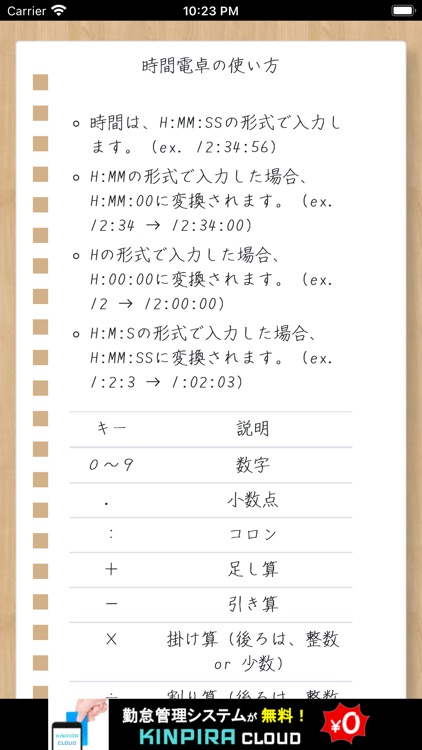 Carrier 10:23 PM
時間電卓の使い方
時間は、H:MM:SSの形式で入力し
ます。（ex. 12:34:56）
H:MMの形式で入力した場合、
H:MM:00に変換されます。（ex.
12:34 → 12:34:00）
Hの形式で入力した場合、
H:00:00に変換されます。（ex.
12 → 12:00:00）
H:M:Sの形式で入力した場合、
H:MM:SSに変換されます。（ex.
1:2:3 → 1:02:03）
キー 説明
0〜9 数字
. 小数点
: コロン
+ 足し算
− 引き算
× 掛け算（後ろは、整数
or 少数）
÷ 割り算（後ろは、整数
勤怠管理システムが無料！
KINPIRA CLOUD
KINPIRA
CLOUD
¥0